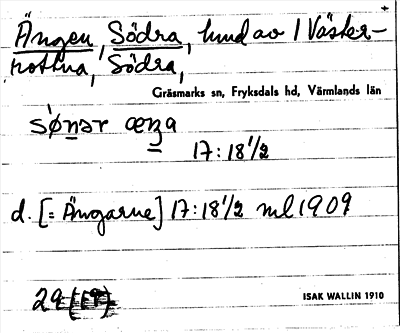 Ängen, Södra, hmd av 1 Väster-
rottna, Södra,
Gräsmarks sn, Fryksdals hd, Värmlands län
sǿnər æŋa
17:18 1/2
d. [= Ängarne] 17:18 1/2 ml 1909
29
ISAK WALLIN 1910